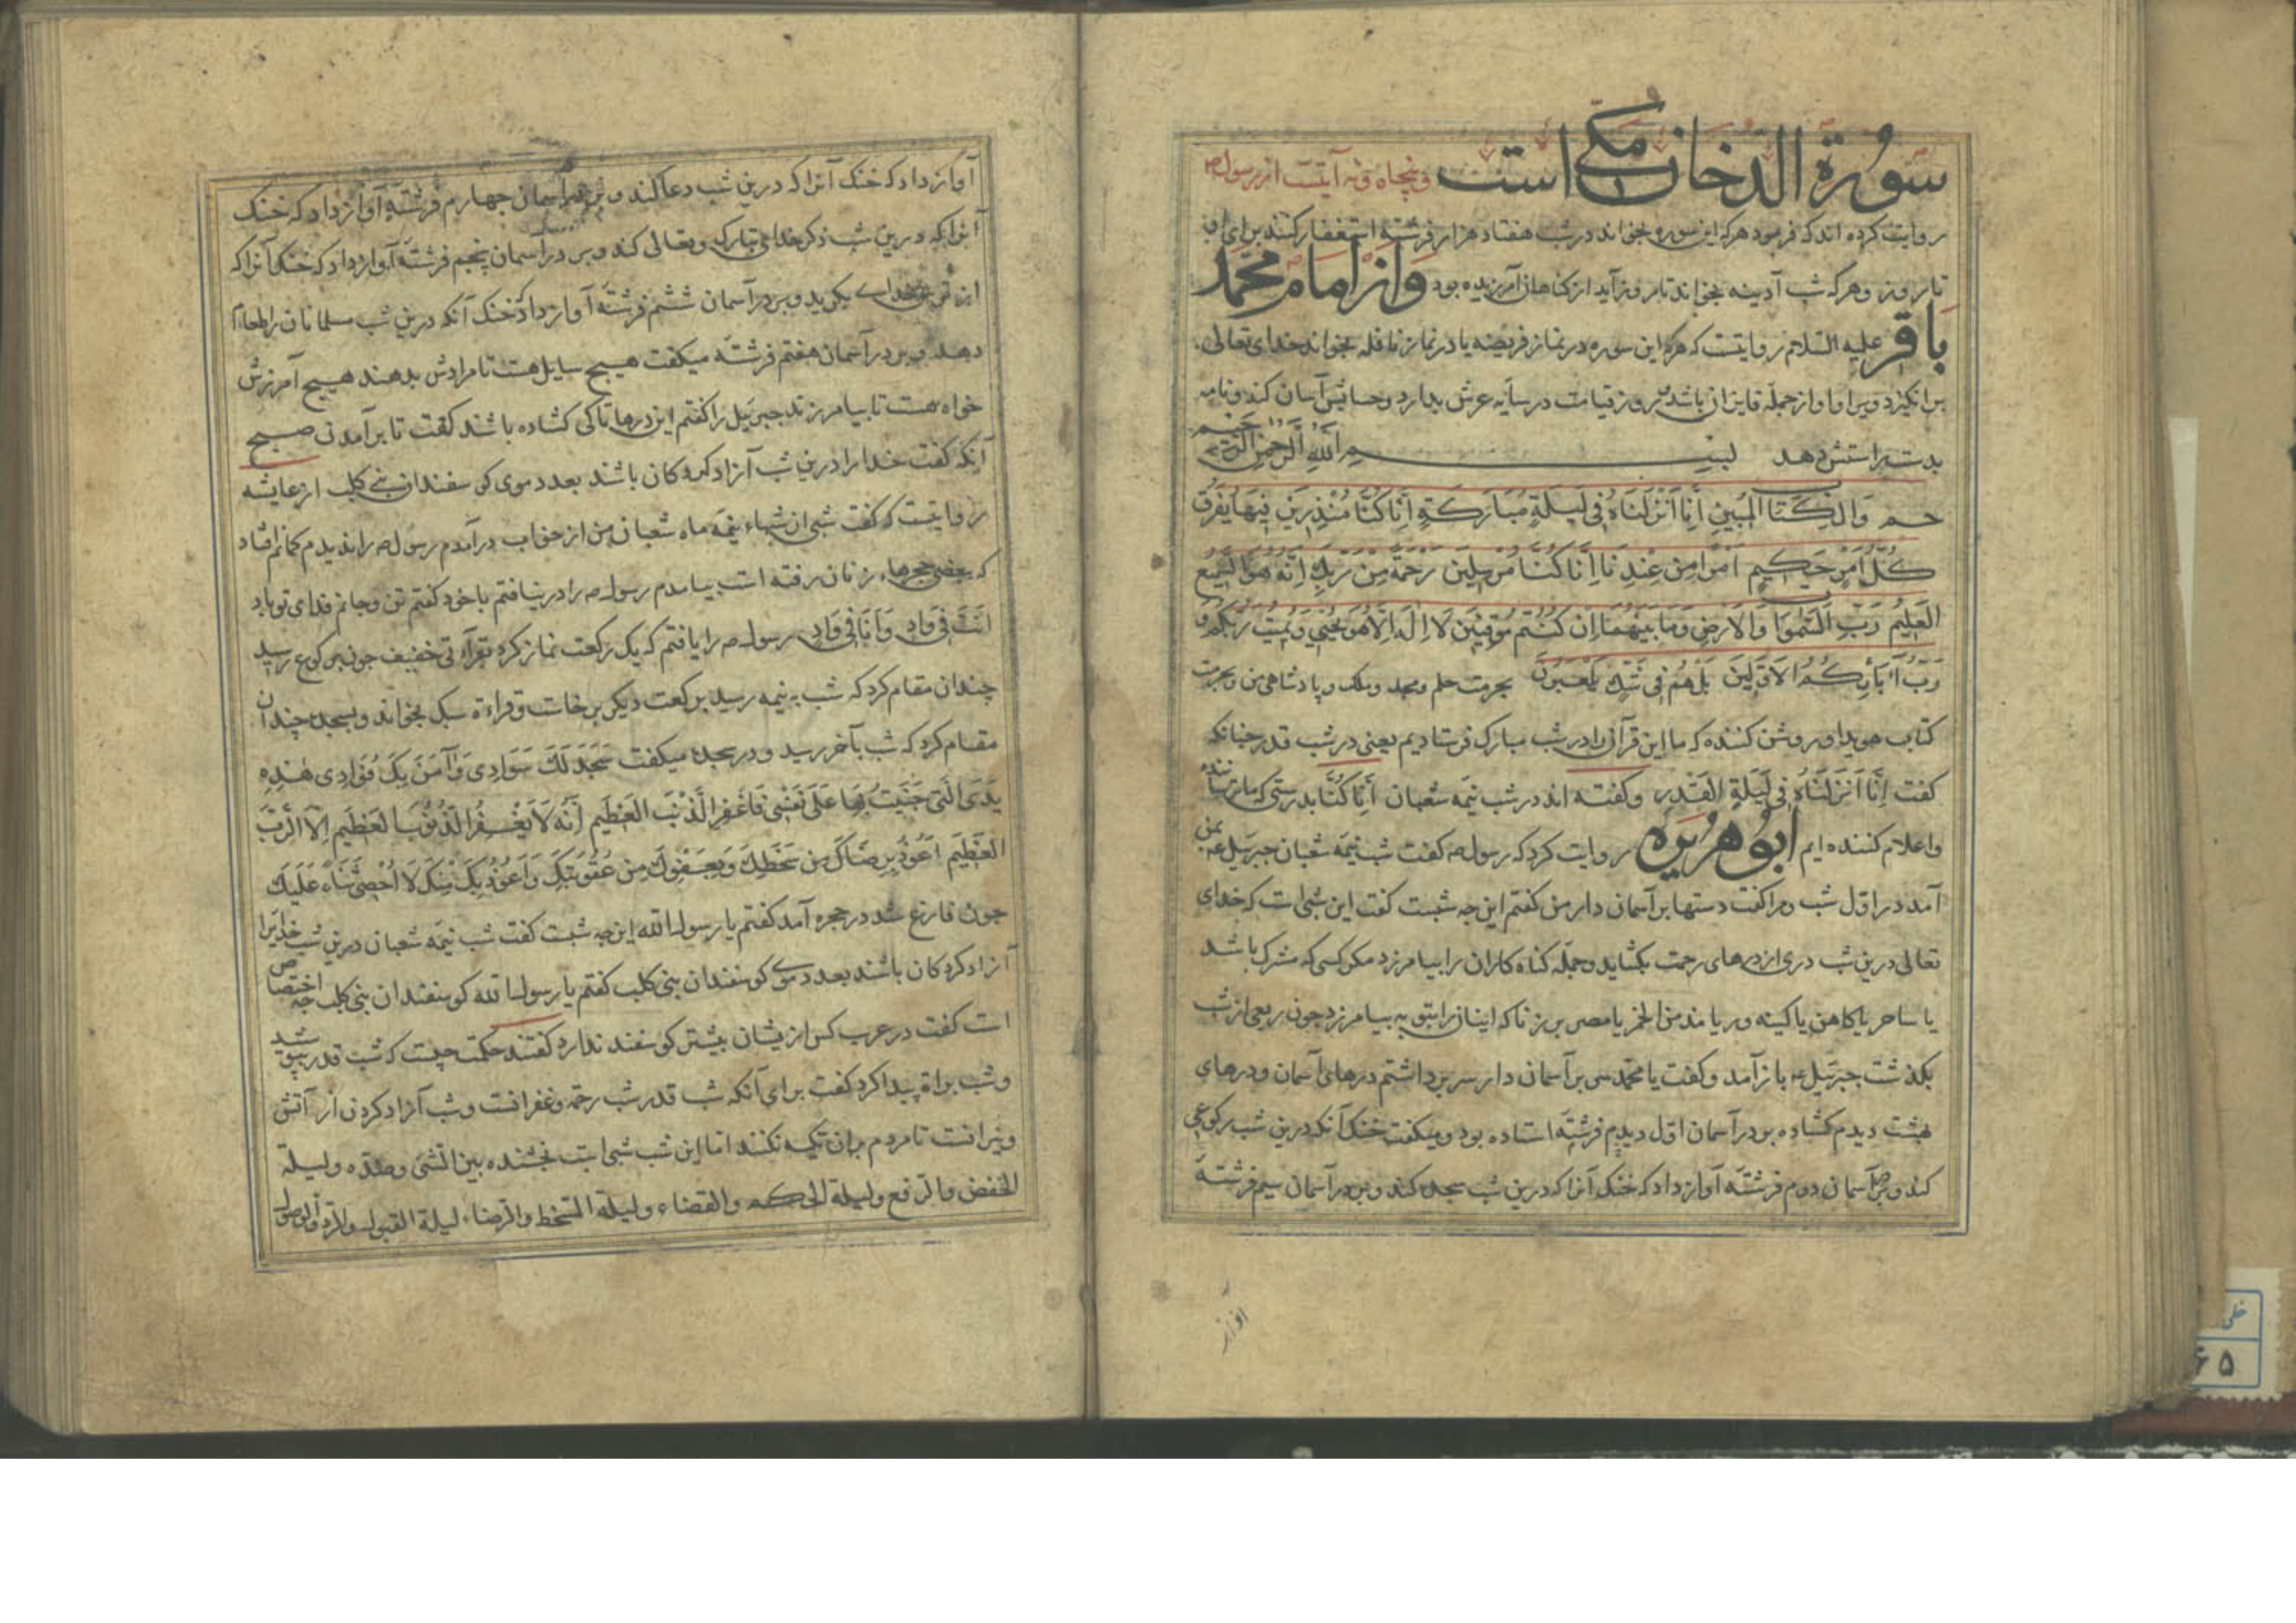 سُورة الدخان مکی است و پنجاه و نه آیتست از رسول ص
روایت کرده اند که فرمود هرکه این سوره بخواند در شب هفتاد هزار فرشته استغفار کنند برای او
تا روز و هرکه شب آدینه بخواند تا روز آید از کناهان آمرزیده بود و از امام محمّد
باقر علیه السّلام روایتست که هرکه این سوره در نماز فریضه یا در نماز نافله بخواند خدای تعالی
برانکیزد ویرا و او از جمله فایزان باشد روز قیامت در سایه عرش بدارد و حسابش آسان کند و نامه
بدست راستش دهد بسم الله الرّحمن الرّحیم
حم وَالْکِتَابِ المُبینِ اِنَّا اَنْزَلنَاهُ فی لَیلَةٍ مُبَارَکَةٍ اِنَّا کُنَّا مُنْذِرِینَ فِیهَا یُفْرَقُ
کُلُّ اَمْرٍ حَکِیمٍ اَمْرًا مِن عِنْدِنَا اِنَّا کُنَّا مُرْسِلِینَ رَحْمَةً مِنْ رَبِّکَ اِنَّهُ هُوَ السَّمِیعُ
العَلِیمُ رَبِّ السَّمٰوَاتِ وَالاَرضِ وَمَا بَینَهُمَا اِنْ کُنْتُم مُوقِنِینَ لَا اِلٰهَ اِلَّا هُوَ یُحْیِي وَیُمِیتُ رَبُّکُم وَ
رَبُّ آبَائِکُمُ الاَوَّلِینَ بَلْ هُمْ فِی شَکٍّ یَلْعَبُونَ بحرمت حلم و مجد و ملک و پادشاهی من و بحرمت
کتاب هویدا و روشن کننده که ما این قرآن را در شب مبارک فرستادیم یعنی در شب قدر چنانکه
کفت اِنَّا اَنْزَلنَاهُ فِی لَیلَةِ القَدْرِ و کفته اند در شب نیمه شعبان اِنَّا کُنَّا بدرستی که ما ترساننده
و اعلام کننده ایم ابُو هُرَیرَه روایت کرد که رسول ص کفت شب نیمه شعبان جبرئیل ع بمن
آمد در اوّل شب و مرا کفت دستها بر آسمان دار من کفتم این چه شبست کفت این شبی است که خدای
تعالی درین شب دری از درهای رحمت بکشاید و جمله کناه کاران را بیامرزد مکر کسی که مشرک باشد
یا ساحر یا کاهن یا کینه ور یا مدمن الخمر یا مصر بر زنا که اینان را بتوبه بیامرزد چون ربعی از شب
بکذشت جبرئیل ع باز آمد و کفت یا محمّد سر بر آسمان دار سر برداشتم درهای آسمان و درهای
بهشت دیدم کشاده بود بر آسمان اوّل دیدم فرشته استاده بود و میکفت خنک آنکه درین شب رکوعی
کند و بر در آسمان دوم فرشته آواز داد که خنک آنرا که درین شب سجده کند و بر در آسمان سیم فرشته
آواز
آواز داد که خنک آنرا که درین شب دعا کند و بر در آسمان چهارم فرشته آواز داد که خنک
آنرا که درین شب ذکر خدای تبارک و تعالی کند و بر در آسمان پنجم فرشته آواز داد که خنک آنرا که
از ترس خدای بکرید و بر در آسمان ششم فرشته آواز داد که خنک آنکه درین شب مسلمانان را طعام
دهد و بر در آسمان هفتم فرشته میکفت هیچ سایل هست تا مرادش بدهند هیچ آمرزش
خواه هست تا بیامرزند جبرئیل را کفتم این درها تا کی کشاده باشد کفت تا برآمدن صبح
آنکه کفت خدا را درین شب آزاد کرده کان باشند بعدد موی کوسفندان بنی کلب از عایشه
روایتست که کفت شبی از شبهاء نیمه ماه شعبان من از خواب درآمدم رسول ص را ندیدم کمانم افتاد
که ببعضی حجرهاء زنان رفته است بیامدم رسول ص را درنیافتم با خود کفتم تن و جانم فدای تو باد
اَنْتَ فِی وَادٍ وَاَنَا فِی وَادٍ رسول ص را یافتم که یک رکعت نماز کرد بقرآءتی خفیف چون برکوع رسید
چندان مقام کرد که شب بنیمه رسید برکعت دیکر برخاست و قراءة سبک بخواند و بسجده چندان
مقام کرد که شب بآخر رسید و در سجده میکفت سَجَدَ لَکَ سَوَادِی وَآمَنَ بِکَ فُؤَادِی هٰذِهِ
یَدَیَ الَّتی جَنَیتُ بِهَا عَلَی نَفْسِی فَاغْفِرِ الذَّنْبَ العَظِیمَ اِنَّهُ لَا یَغْفِرُ الذُّنُوبَ العَظِیمَ اِلَّا الرَّبُّ
العَظِیمُ اَعُوذُ بِرِضَاکَ مِن سَخَطِکَ وَبِعَفْوِکَ مِن عُقُوبَتِکَ وَاَعُوذُ بِکَ مِنْکَ لَا اُحْصِی ثَنَاءً عَلَیکَ
چون فارغ شد در حجره آمد کفتم یا رسول الله این چه شبست کفت شب نیمه شعبان درین شب خدایرا
آزاد کردکان باشند بعدد موی کوسفندان بنی کلب کفتم یا رسول الله کوسفندان بنی کلب چه اختصاص
است کفت در عرب کس ازیشان بیشتر کوسفند ندارد کفتند حکمت چیست که شب قدر بپوشید
و شب براة پیدا کرد کفت برای آنکه شب قدر شب رحمة و غفرانست و شب آزاد کردن از آتش
و نیرانست تا مردم بران تکیه نکنند امّا این شب شبی است بین الشئ و ولیلة
الخفض والرفع ولیلة الحکم والقضاء ولیلة السّخط والرّضاء لیلة القبول والرّد والوصول
خطی
۶۵